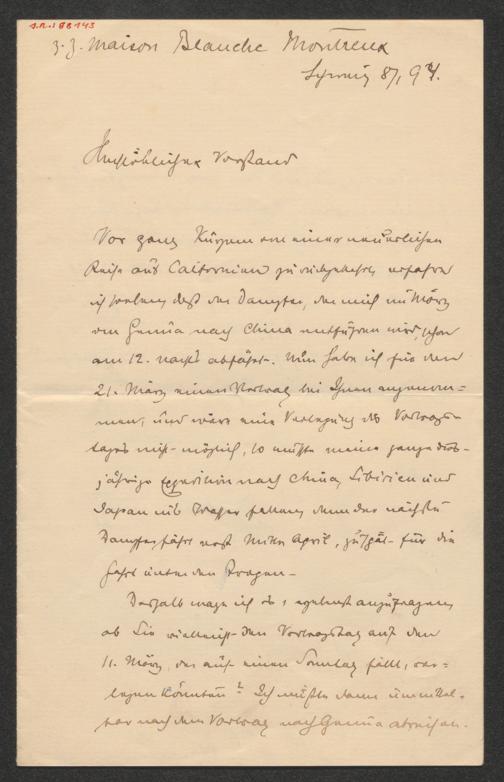 z. Z. Maison Blanche Montreux
Schweiz 8/1 94.
Hochlöblicher Vorstand
Vor ganz Kurzem von einer neuerlichen
Reise aus Californien zurückgekehrt, erfahre
ich soeben, daß der Dampfer, der mich im März
von Genua nach China entführen wird, schon
am 12. nachts abfährt. Nun habe ich für den
21. März einen Vortrag bei Ihnen angenom-
men, und wäre eine Verlegung des Vortrags-
tages nicht möglich, so müßte meine ganze dies-
jährige Expedition nach China, Sibirien und
Japan ins Wasser fallen, denn der nächste
Dampfer fährt erst Mitte April, zu spät für die
Fahrt unter den Tropen.
Deshalb wage ich es, ergebenst anzufragen,
ob Sie vielleicht den Vortragstag auf den
11. März, der auf einen Sonntag fällt, ver-
legen könnten? Ich müßte dann unmittel-
bar nach dem Vortrag nach Genua abreisen.